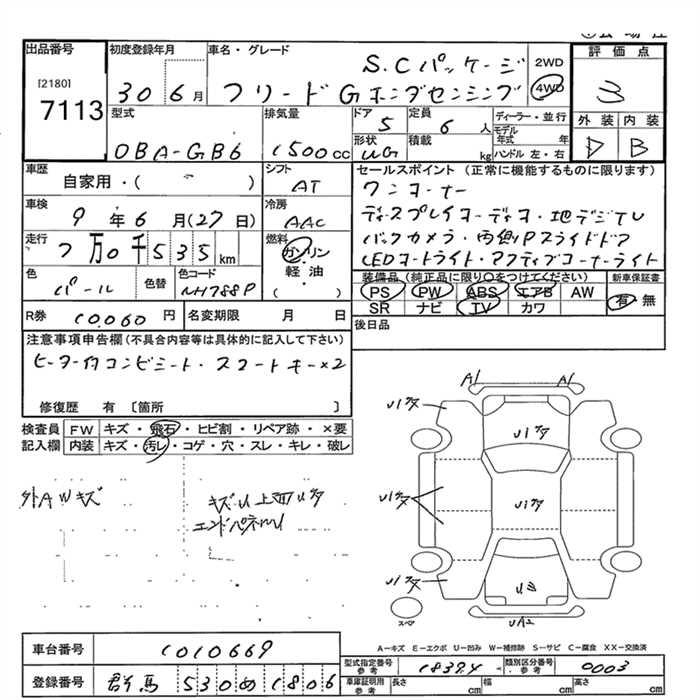 出品番号
[2180]
7113
初度登録年月
30 6月
車名・グレード
S.Cパッケージ
フリードGホンダセンシング
2WD
4WD
評価点
3
外装 内装
D B
型式
DBA-GB6
排気量
1500cc
ドア
5
形状
UG
定員
6人
積載
kg
ディーラー・並行
モデル年式 年
ハンドル 左・右
車歴
自家用・( )
シフト
AT
車検
9年6月(27日)
冷房
AAC
走行
7万0千535km
燃料
ガソリン
軽・油
( )
色
パール
色替
色コード
NH788P
セールスポイント (正常に機能するものに限ります)
ワンオーナー
ディスプレイオーディオ・地デジTV
バックカメラ・両側Pスライドドア
LEDオートライト・アクティブコーナーライト
装備品(純正品に限り○をつけてください)
PS PW ABS エアB AW
SR ナビ TV カワ
新車保証書
有 無
R券 10,060円
名変期限 月 日
後日品
注意事項申告欄(不具合内容等は具体的に記入して下さい)
ヒーター付コンビシート・スマートキー×2
修復歴 有 〔箇所 〕
検査員記入欄
FW キズ・飛石・ヒビ割・リペア跡・×要
内装 キズ・汚レ・コゲ・穴・スレ・キレ・破レ
外AWキズ
キズU上面Uタ
エンドパネルU
A1 A1
スペア
A-キズ E-エクボ U-凹み W-補修跡 S-サビ C-腐食 XX-交換済
車台番号 1010669
登録番号 群馬 530 め 1806
型式指定番号 参考 18394
類別区分番号 参考 0003
車庫証明用 参考 長さ cm 幅 cm 高さ cm